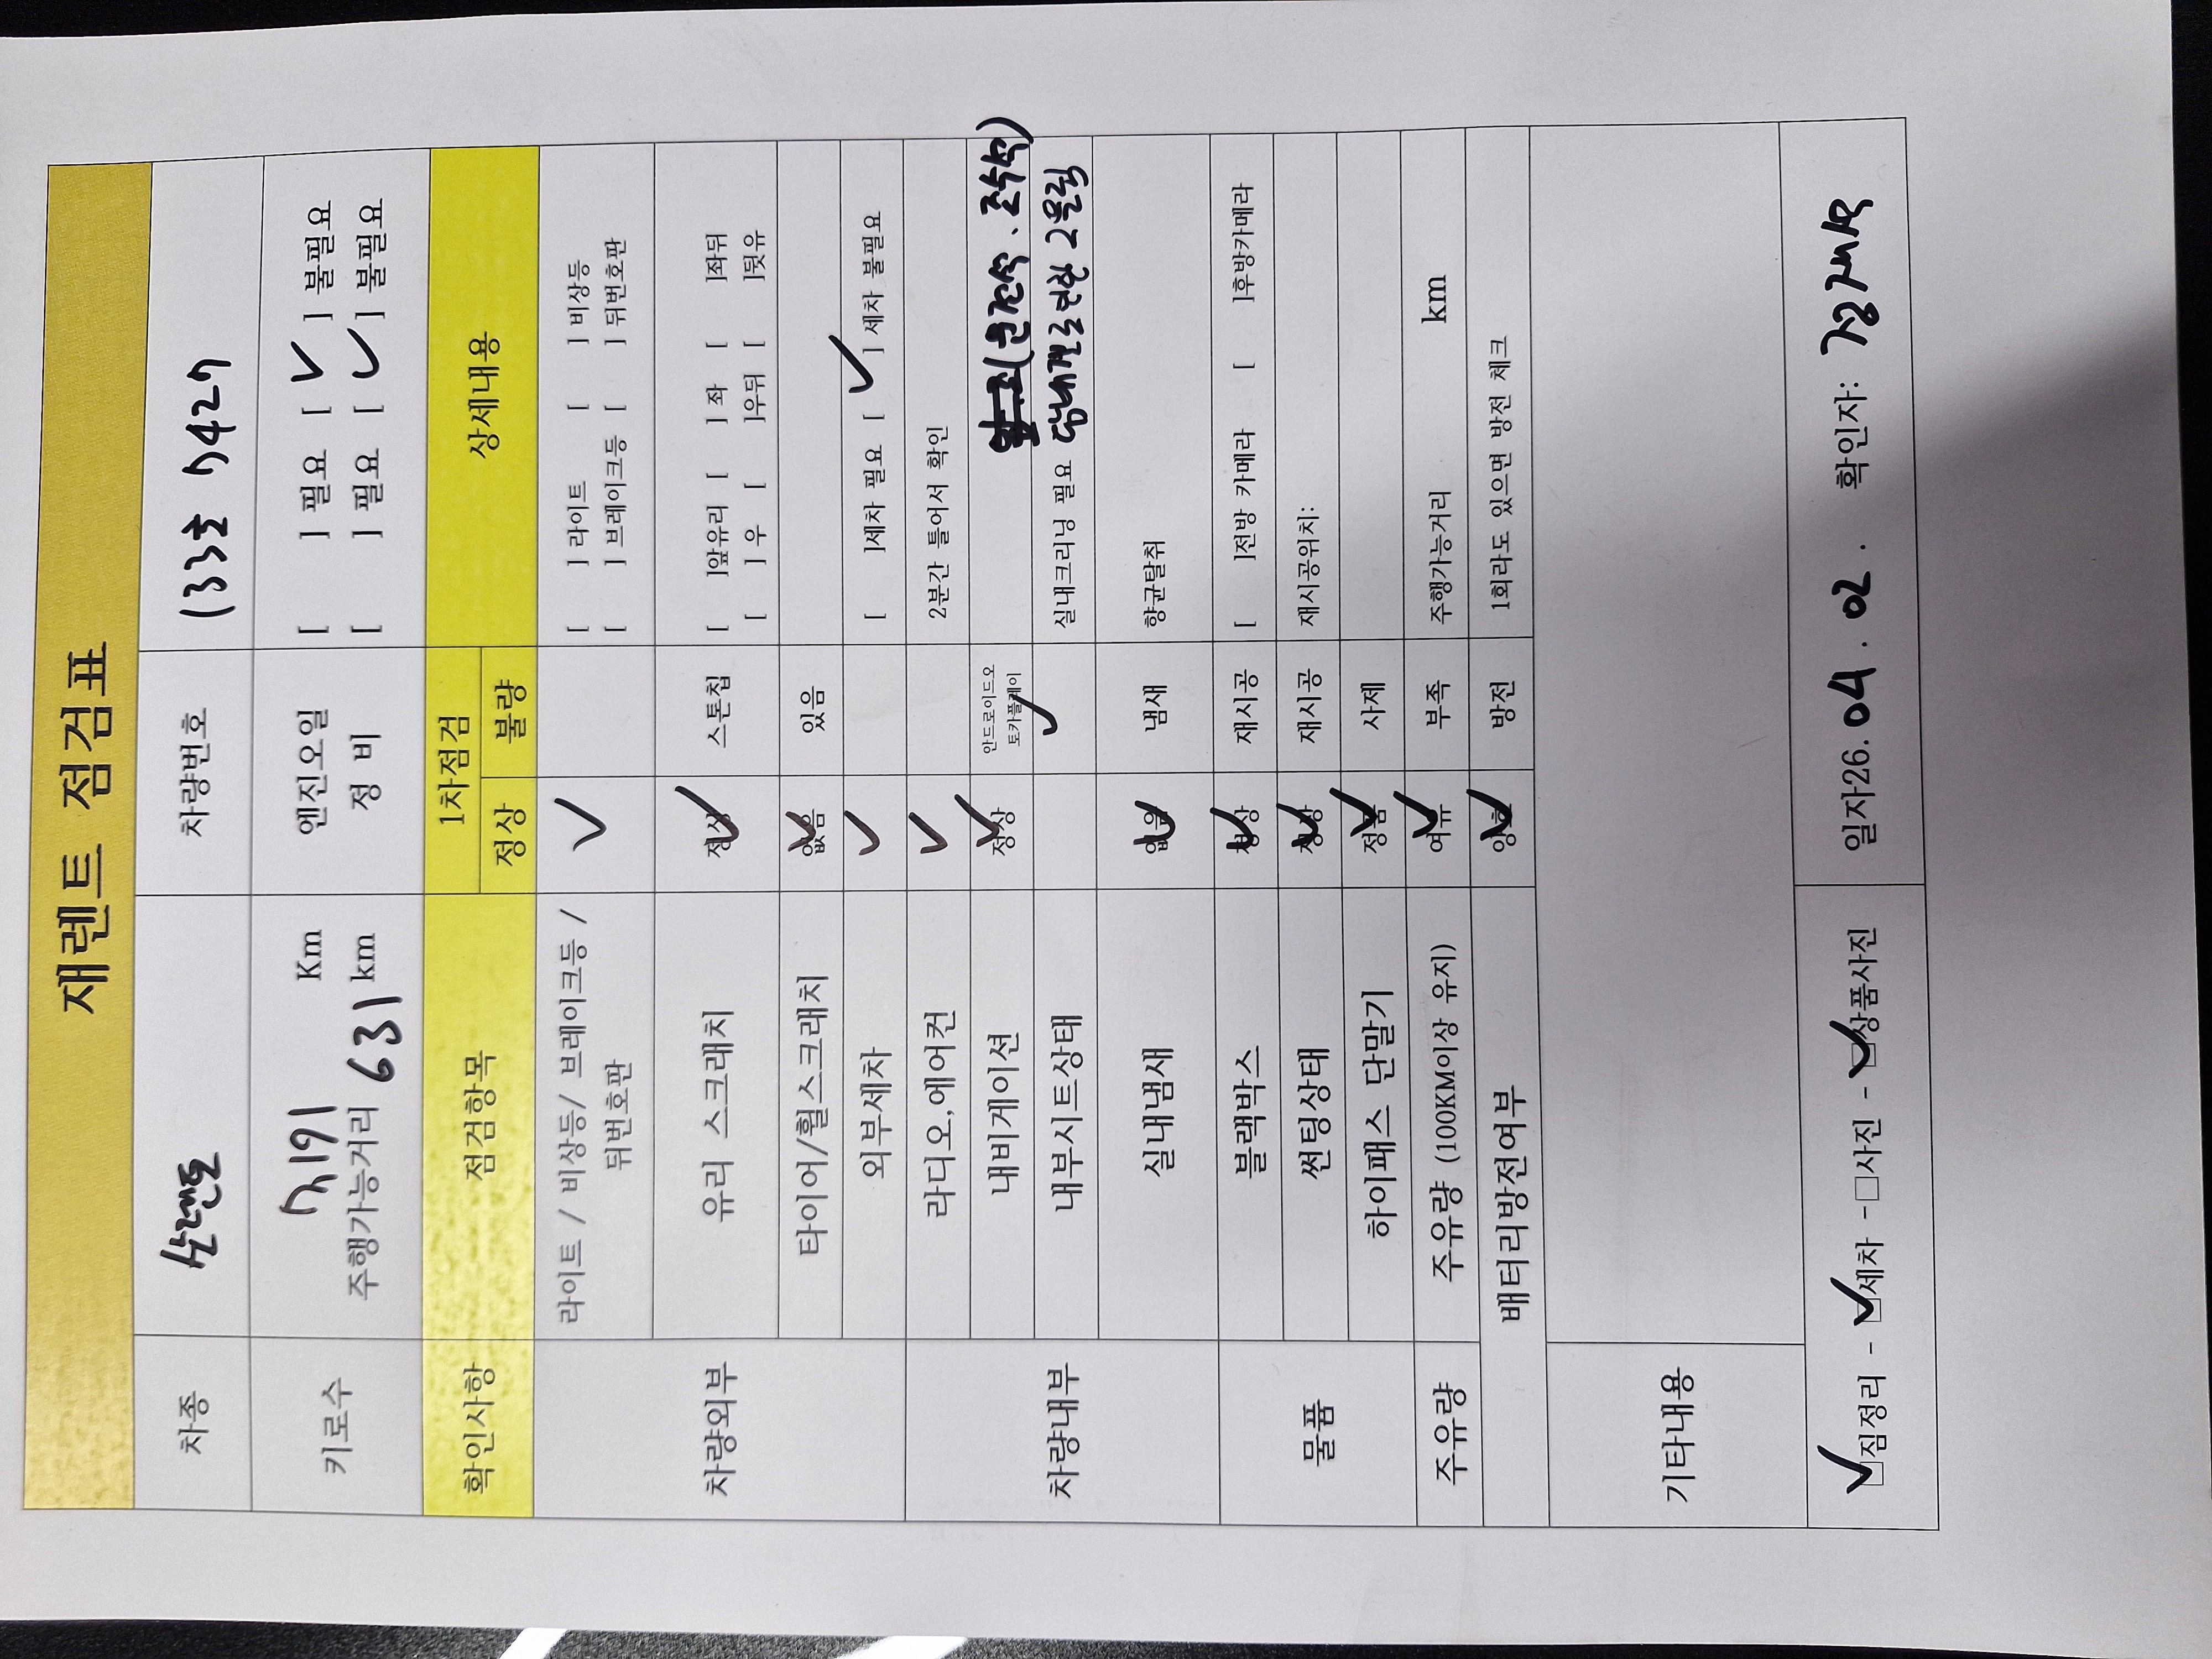 재렌트 점검표
차종 싼타페 차량번호 133호 7427
키로수 7191 Km 엔진오일 [ ] 필요 [ ✓ ] 불필요
주행가능거리 631 km 정 비 [ ] 필요 [ ✓ ] 불필요
확인사항 점검항목 1차점검 상세내용
정상 불량
차량외부 라이트 / 비상등/ 브레이크등 / ✓ [ ] 라이트 [ ] 비상등
뒤번호판 [ ] 브레이크등 [ ] 뒤번호판
유리 스크래치 정상 ✓ 스톤칩 [ ]앞유리 [ ] 좌 [ ]좌뒤
[ ] 우 [ ]우뒤 [ ]뒷유
타이어/휠스크래치 없음 ✓ 있음
외부세차 ✓ [ ]세차 필요 [ ✓ ] 세차 불필요
차량내부 라디오,에어컨 ✓ 2분간 틀어서 확인
내비게이션 정상 ✓ 안드로이드오
토카플레이 (운전석 . 조수석)
내부시트상태 ✓ 실내크리닝 필요
실내냄새 없음 ✓ 냄새 향균탈취
물품 블랙박스 정상 ✓ 재시공 [ ]전방 카메라 [ ]후방카메라
썬팅상태 정상 ✓ 재시공 재시공위치:
하이패스 단말기 정품 ✓ 사제
주유량 주유량 (100KM이상 유지) 여유 ✓ 부족 주행가능거리 km
배터리방전여부 양호 ✓ 방전 1회라도 있으면 방전 체크
기타내용
☑짐정리 - ☑세차 - □사진 - ☑상품사진 일자26. 04 . 02 . 확인자: